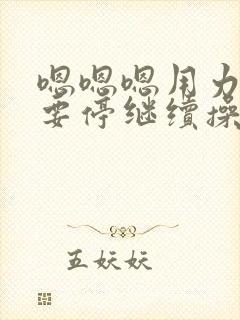 嗯嗯嗯用力
要停继续操
五妖妖